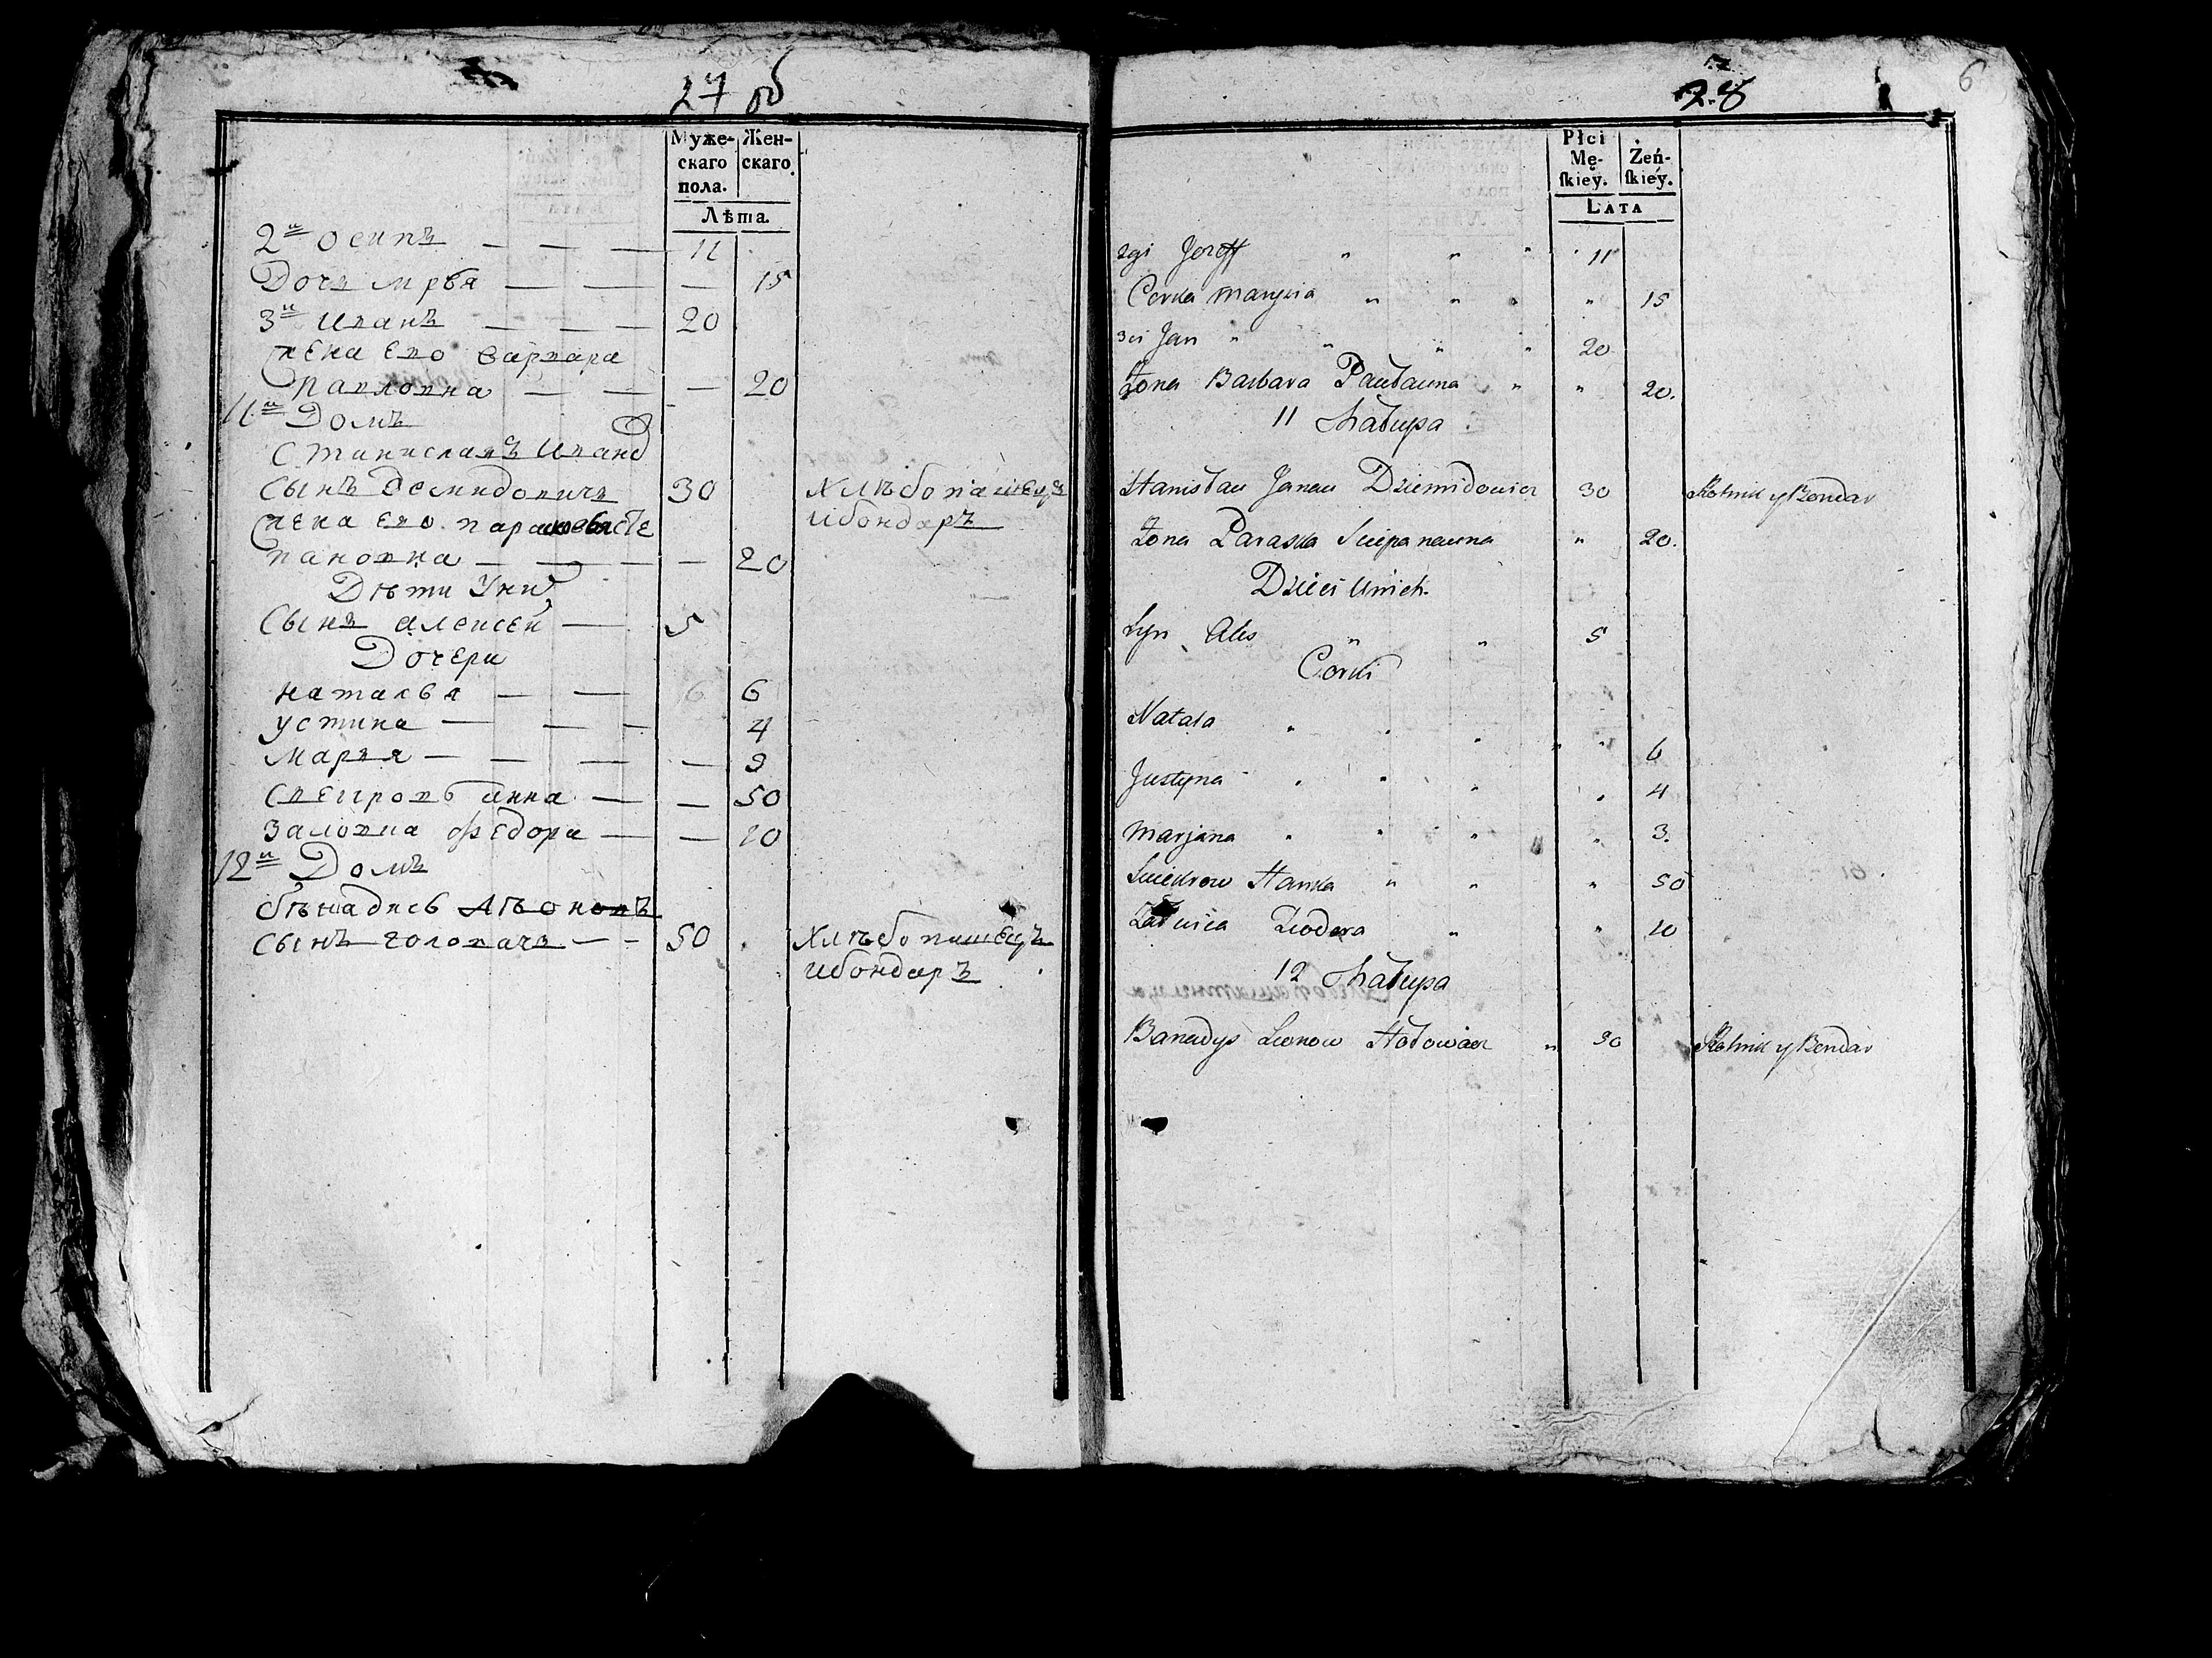 27 об
Муже-
скаго
пола.
Жен-
скаго.
Лѣта.
2й Осипъ — — — 11
Дочь Мрья — — — 15
3й Иванъ — — — 20
Жена Ево Варвара
Павловна — — — 20
11й Домъ
Станиславъ Иванѡ
Сынъ Демидовичъ 30 Хлѣбопашецъ
Жена Ево Парасковья Сте ибондаръ
пановна — — — 20
Дѣти Ународ
Сынъ Алексей — 5
Дочери
Наталья — — 6 6
Устина — — — 4
Марья — — — — 3
Свекровь Анна — — 50
Заловка Федора — — 10
12й Домъ
Бѣнадись Лѣоновъ
Сынъ Головачъ — — 50 Хлѣбопашецъ
ибондаръ
28
6
Płci
Mę-
ſkiey.
Żeń-
ſkiéy.
Lata
2gi Jozeff " " " " 11
Corka Maryna " " " " 15
3ci Jan " " " " 20
Żona Barbara Pawłowna " " 20.
11 Chałupa
Stanisław Janow Dziemidowicz 30 Rolnik y Bondar
Żona Paraska Sciepanowna " 20.
Dzieci Unich
Syn Ales " " 5
Corki
Natala " " " " " 6
Justyna " " " " 4
Marjana " " " " 3.
Swiekrow Hanka " " " 50
Załwica Chodora " " 10
12 Chałupa
Banadys Leonow Hołowacz " 50 Rolnik y Bondar